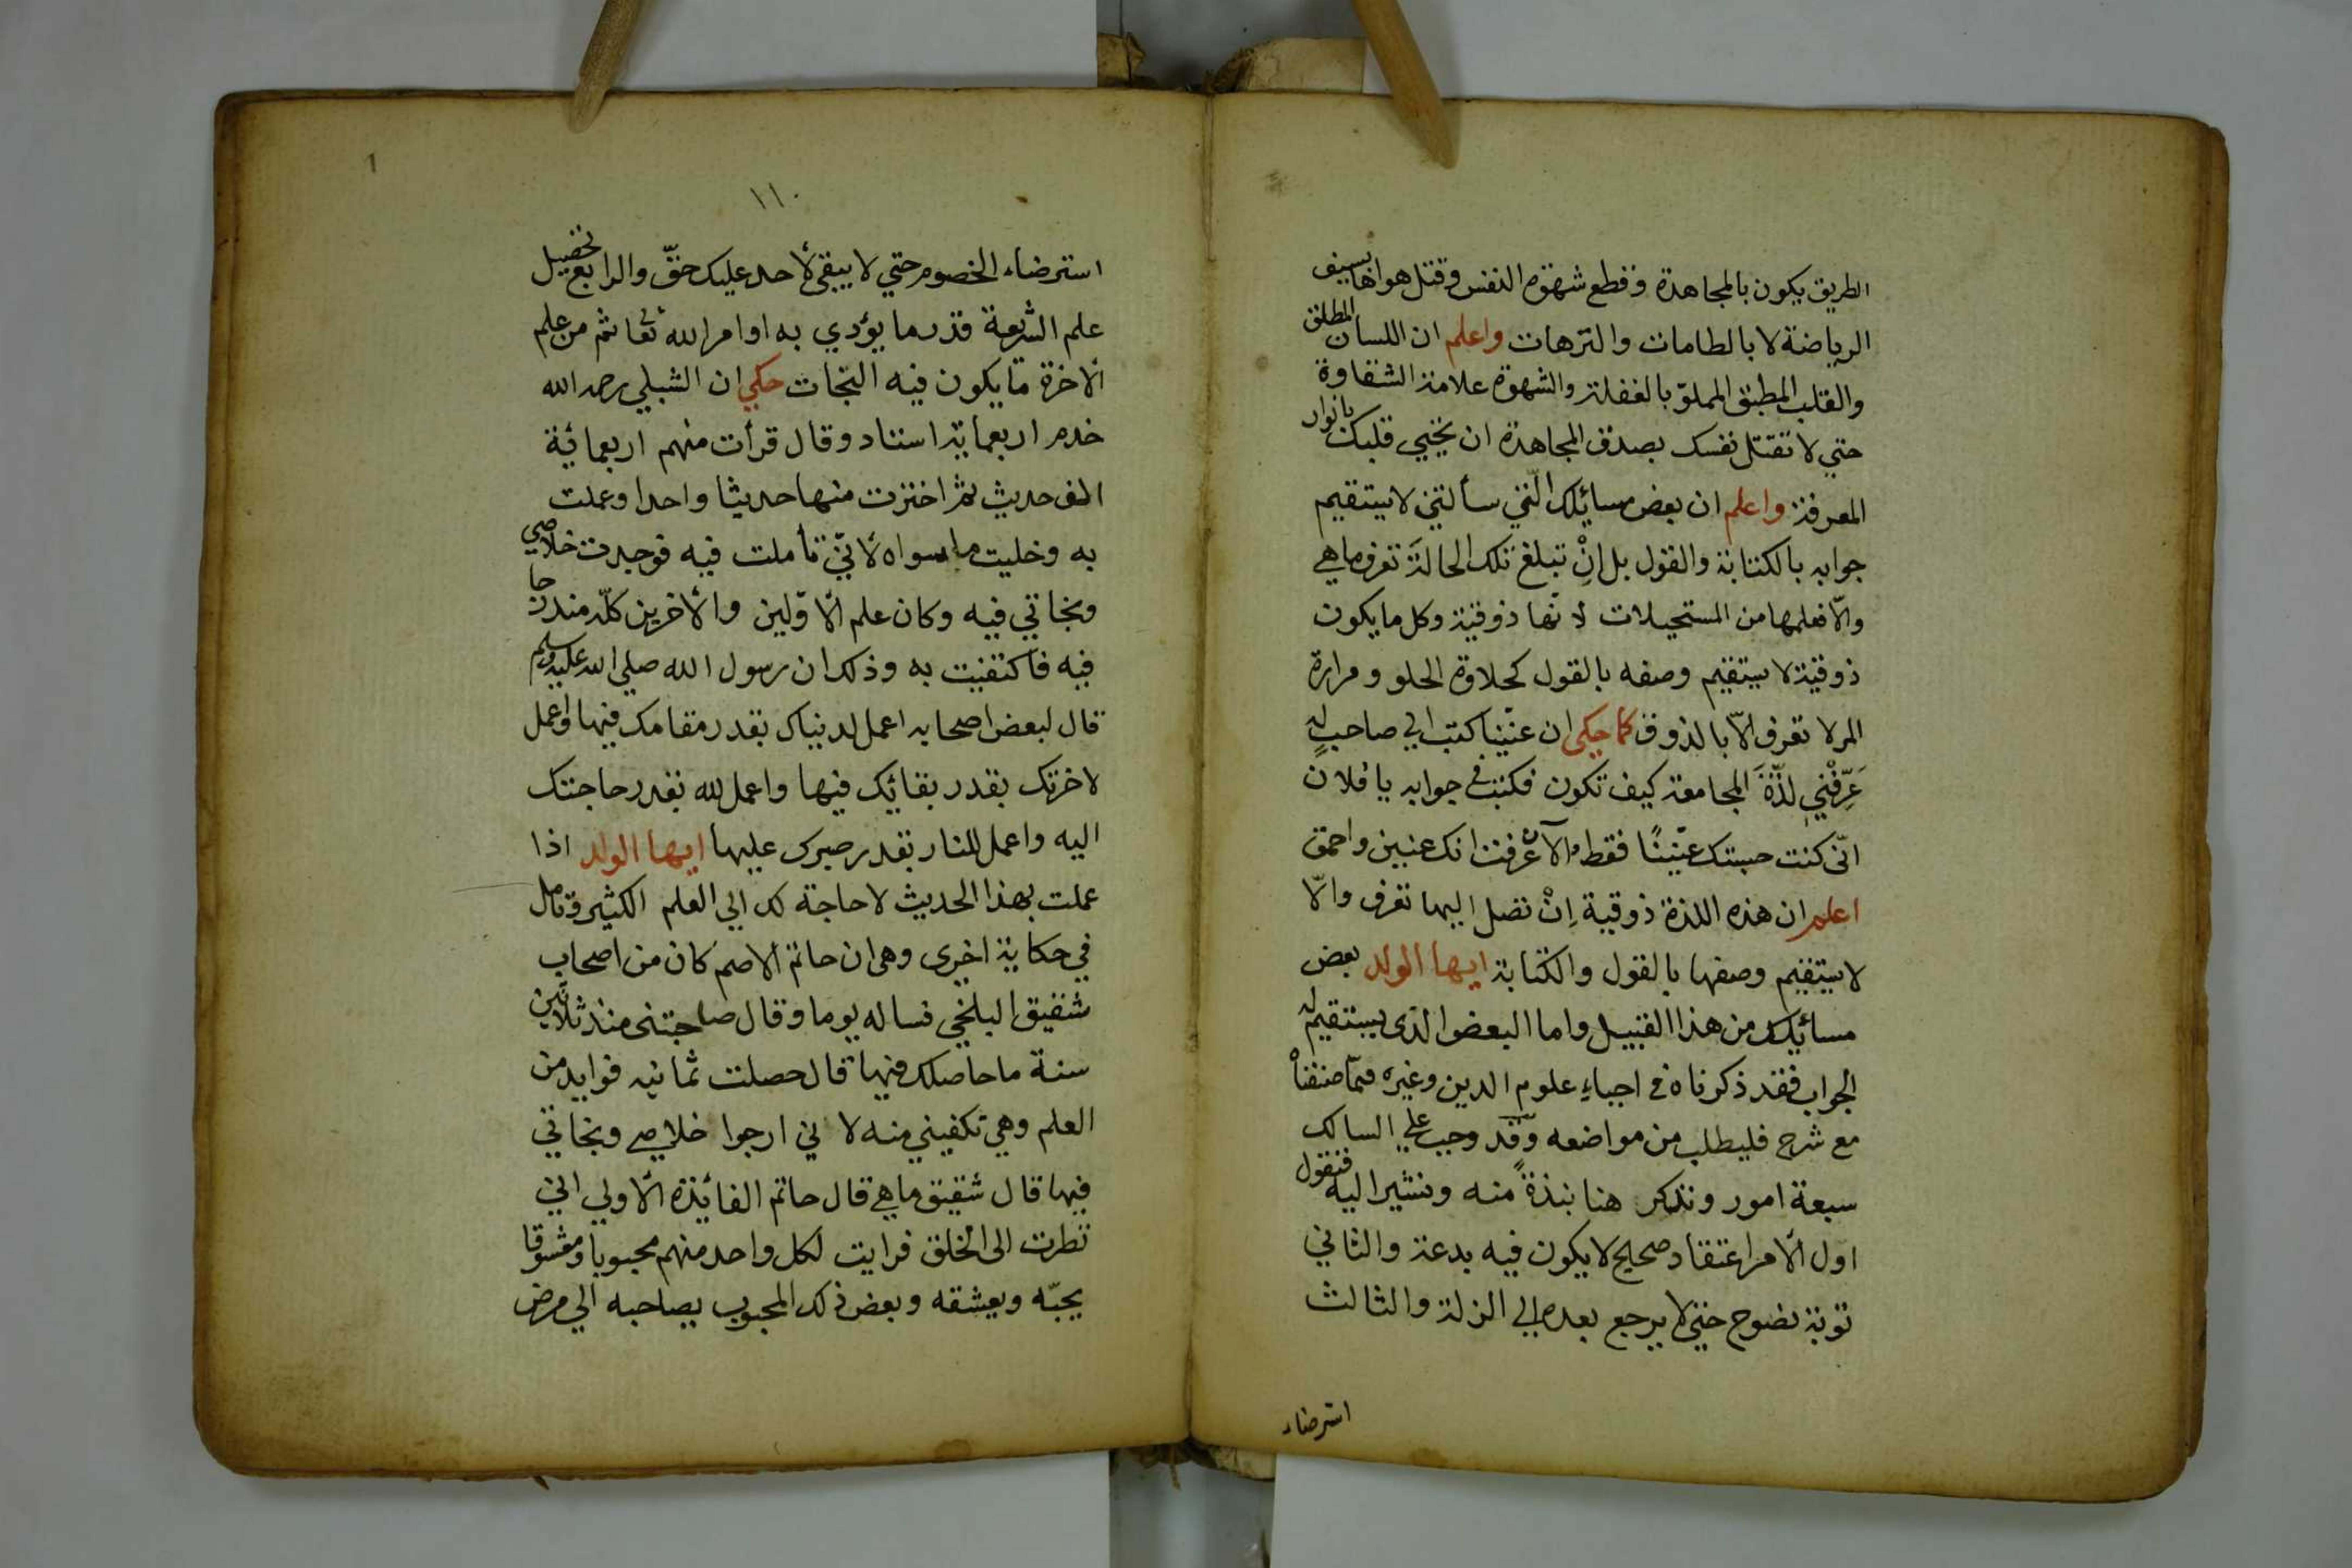 الطريق يكون بالمجاهدة وقطع شهوة النفس وقتل هواها بسيف
الرياضة لا بالطامات والترهات واعلم ان اللسان المطلق
والقلب المطبق المملوّ بالغفلة والشهوة علامة الشقاوة
حتي لا تقتل نفسك بصدق المجاهدة ان يحيي قلبك بانوار
المعرفة واعلم ان بعض مسايلك الّتي سألتني لا يستقيم
جوابه بالكتابة والقول بل انْ تبلغ تلك الحالةَ تعرف ما هي
والّا فعلمها من المستحيلات لانّها ذوقيّة وكل ما يكون
ذوقيّة لا يستقيم وصفه بالقول كحلاوة الحلو ومرارة
المر لا تعرف الّا بالذوق كما حكي ان عنّينا كتب الي صاحبٍ له
عَرِّفْني لذّةَ المجامعة كيف تكون فكتب في جوابه يا فلان
انّي كنت حسبتك عنّينًا فقط والآن عرفت انك عنين واحمق
اعلم ان هذه اللذة ذوقية اِنْ تصل اليها تعرف والّا
لا يستقيم وصفها بالقول والكتابة ايها الولد بعض
مسائلك من هذا القبيل واما البعض الذي يستقيم له
الجواب فقد ذكرناه في احياءِ علوم الدين وغيره ممّا صنفناه
مع شرح فليطلب من مواضعه وقد وجب علي السالك
سبعة امور ونذكر هنا نبذةً منه ونشير اليه فنقول
اول الأمر اعتقاد صحيح لا يكون فيه بدعة والثاني
توبة نصوح حتي لا يرجع بعده الي الزلة والثالث
استرضاء
1
١١٠
استرضاء الخصوم حتي لا يبقي لأحد عليك حقّ والرابع تحصيل
علم الشريعة قدر ما يؤدي به اوامر الله تعالى ثم من علم
ألاخرة ما يكون فيه النجات حكي ان الشبلي رحمه الله
خدم اربعماية استاد وقال قرأت منهم اربعمائة
الف حديث ثم اخترت منها حديثا واحدا وعملت
به وخليت ما سواه لأنّي تأملت فيه فوجدت خلاصي
ونجاتي فيه وكان علم ألاوّلين والأخرين كلّه مندرجا
فيه فاكتفيت به وذلك ان رسول الله صلي الله عليه وسلم
قال لبعض اصحابه اعمل لدنياك بقدر مقامك فيها واعمل
لاخرتك بقدر بقائك فيها واعمل لله بقدر حاجتك
اليه واعمل للنار بقدر صبرك عليها ايها الولد اذا
عملت بهذا الحديث لا حاجة لك الي العلم الكثير وتامل
في حكاية اخري وهي ان حاتم ألاصم كان من اصحاب
شقيق البلخي فساله يوما وقال صاحبتني منذ ثلاثين
سنة ما حاصلك فيها قال حصلت ثمانية فوايد من
العلم وهي تكفيني منه لاني ارجوا خلاصي ونجاتي
فيها قال شقيق ما هي قال حاتم الفائذة ألاولي اني
نظرت الى الخلق فرايت لكل واحد منهم محبوبا ومعشوقا
يحبّه ويعشقه وبعض ذلك المحبوب يصاحبه الي مرض